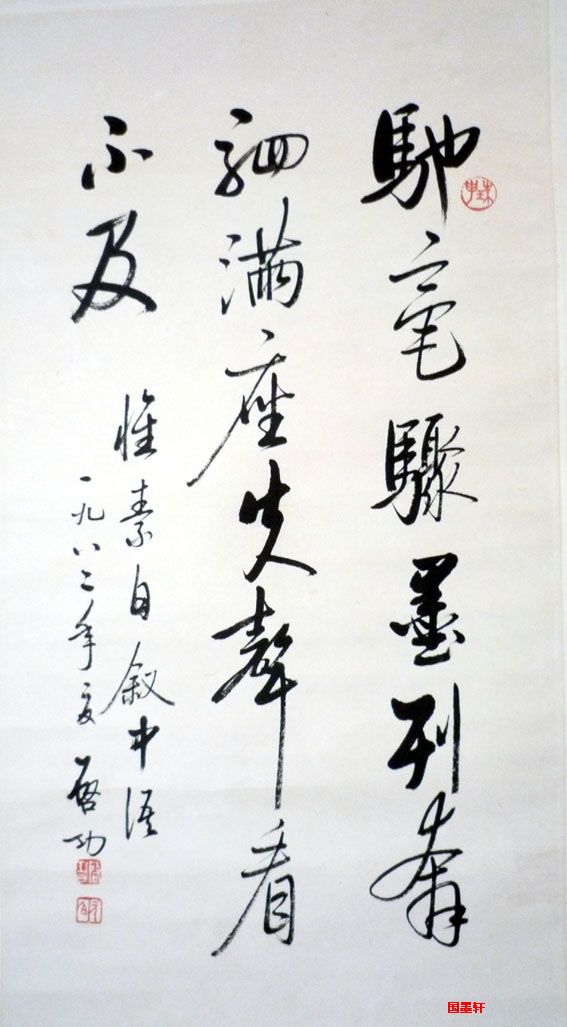 馳毫驟墨列奔
駟滿座失聲看
不及
懷素自叙中語
一九八二年夏
啓功
国墨轩